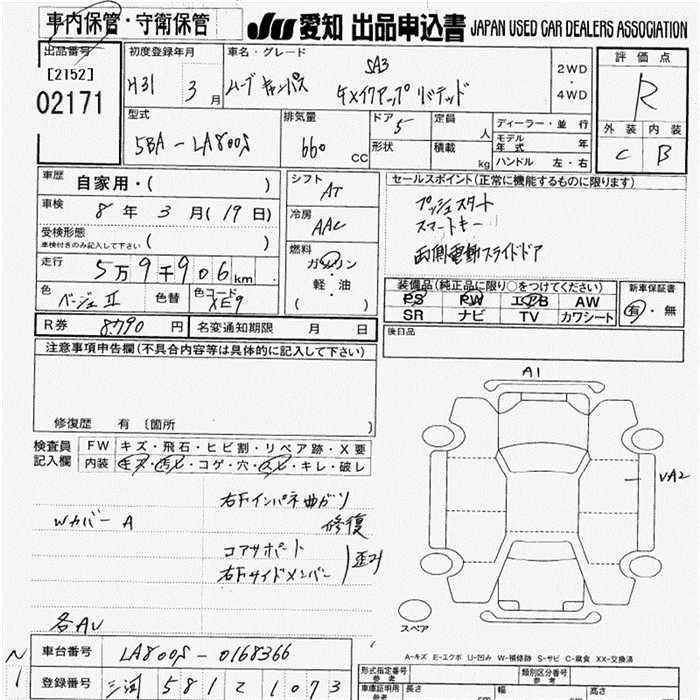 車内保管・守衛保管
JU 愛知 出品申込書 JAPAN USED CAR DEALERS ASSOCIATION
出品番号
[2152]
02171
初度登録年月
H31 3月
車名・グレード
SA3
ムーブキャンバス メイクアップ リミテッド
2WD
・
4WD
評価点
R
外装 内装
C B
型式
5BA-LA800S
排気量
660 CC
ドア
5
形状
定員
人
積載
kg
ディーラー・並行
モデル年式 年
ハンドル 左・右
車歴
自家用・( )
車検
8年 3月(19日)
受検形態
車検付きのみ記入して下さい ( )
走行
5万9千906km
色
ベージュII
色替
色コード
XE9
シフト
AT
冷房
AAC
燃料
ガソリン
軽・油
( )
セールスポイント(正常に機能するものに限ります)
プッシュスタート
スマートキー
両側電動スライドドア
装備品(純正品に限り○をつけてください)
PS PW エアB AW
SR ナビ TV カワシート
新車保証書
有・無
後日品
R券 8790円
名変通知期限 月 日
注意事項申告欄(不具合内容等は具体的に記入して下さい)
修復歴 有 〔箇所 〕
検査員記入欄
FW キズ・飛石・ヒビ割・リペア跡・X要
内装 キズ・汚レ・コゲ・穴・スレ・キレ・破レ
右下インパネ曲がり
修復
WカバーA
コアサポート
右下サイドメンバー
歪み
各AU
A1
UA2
スペア
A-キズ E-エクボ U-凹み W-補修跡 S-サビ C-腐食 XX-交換済
車台番号 LA800S-0168366
N
1
登録番号 三河 581 て 1073
形式指定番号
参考
類別区分番号
参考
車庫証明用
参考
長さ
cm
幅
cm
高さ
cm